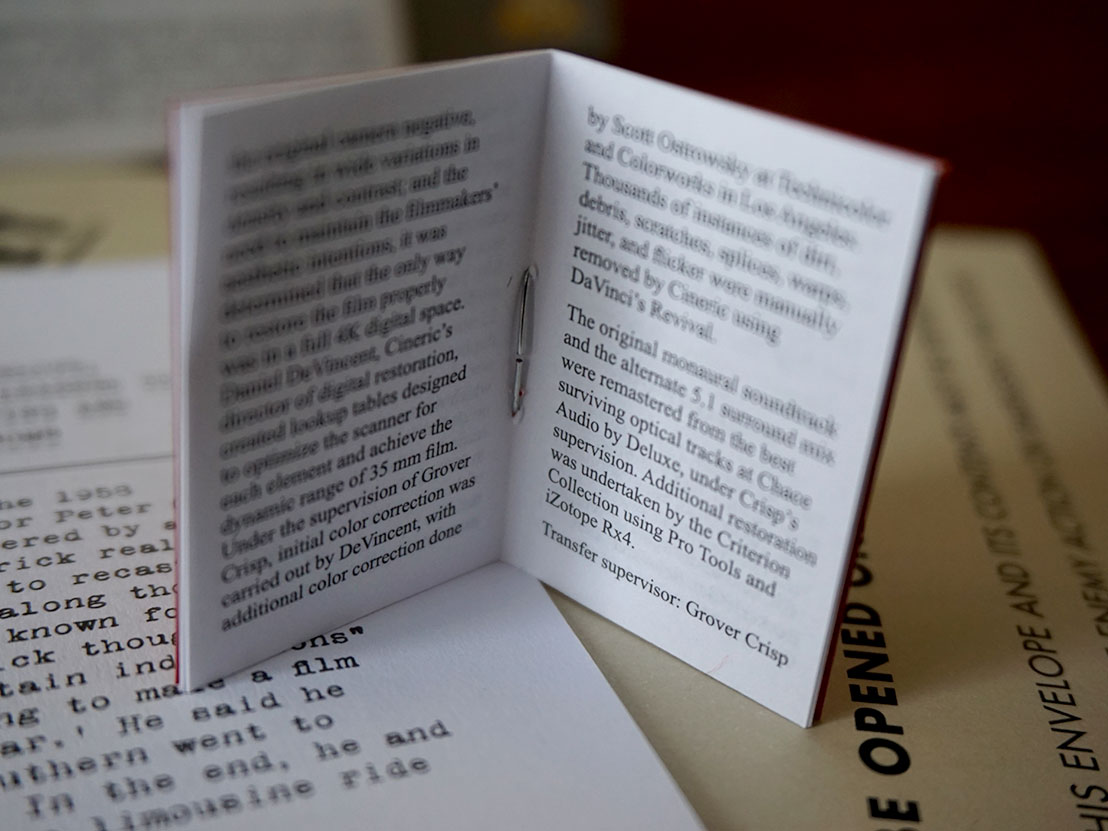 the original camera negative,
resulting in wide variations in
density and contrast; and the
need to maintain the filmmakers'
aesthetic intentions, it was
determined that the only way
to restore the film properly
was in a full 4K digital space.
Daniel DeVincent, Cineric's
director of digital restoration,
created lookup tables designed
to optimize the scanner for
each element and achieve the
dynamic range of 35 mm film.
Under the supervision of Grover
Crisp, initial color correction was
carried out by DeVincent, with
additional color correction done
by Scott Ostrowsky at
and Colorworks in Los Angeles.
Thousands of instances of dirt,
debris, scratches, splices, warps,
jitter, and flicker were manually
removed by Cineric using
DaVinci's Revival.
The original monaural soundtrack
and the alternate 5.1 surround mix
were remastered from the best
surviving optical tracks at Chace
Audio by Deluxe, under Crisp's
supervision. Additional restoration
was undertaken by the Criterion
Collection using Pro Tools and
iZotope Rx4.
Transfer supervisor: Grover Crisp
he 1958
or Peter
ered by a
rick real
to recas
along the
known fo
ck thou ons"
tain ind
ng to make a film
ar.' He said he
uthern went to
In the end, he and
limousine ride
BE OPENED O
HIS ENVELOPE AND ITS CONTENTS
ENEMY ACTION